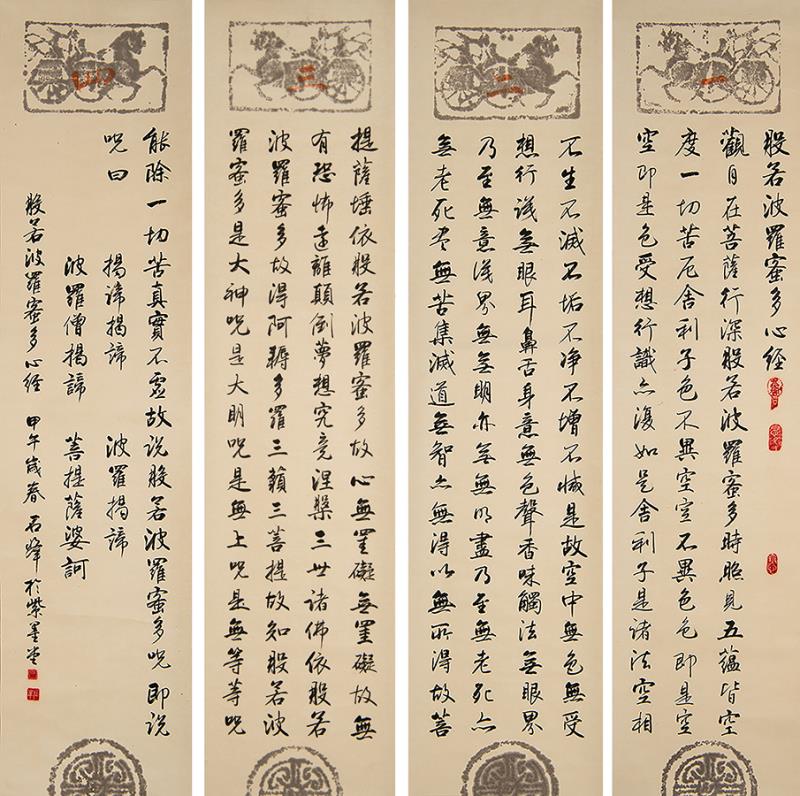 一
般若波羅蜜多心經
觀自在菩薩行深般若波羅蜜多時照見五蘊皆空
度一切苦厄舍利子色不異空空不異色色即是空
空即是色受想行識亦復如是舍利子是诸法空相
二
不生不滅不垢不净不增不减是故空中無色無受
想行识無眼耳鼻舌身意無色聲香味觸法無眼界
乃至無意识界無無明亦無無明盡乃至無老死亦
無老死尽無苦集滅道無智亦無得以無所得故菩
三
提薩埵依般若波羅蜜多故心無罣礙無罣礙故無
有恐怖遠離顛倒夢想究竟涅槃三世諸佛依般若
波羅蜜多故得阿耨多羅三藐三菩提故知般若波
羅蜜多是大神呪是大明呪是無上呪是無等等呪
四
能除一切苦真實不虚故说般若波羅蜜多呪即説
呪曰
揭諦揭諦 波羅揭諦
波羅僧揭諦 菩提薩婆訶
般若波羅蜜多心经 甲午歲春 石峰於紫墨堂